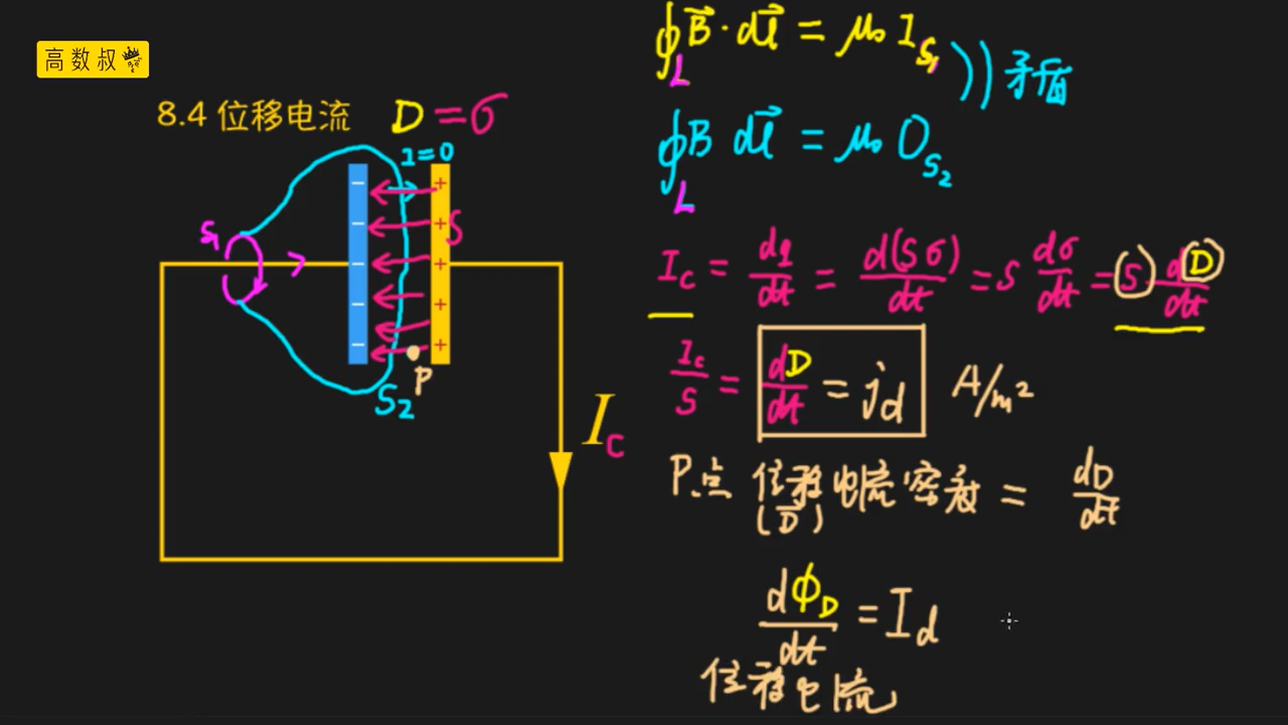 高数叔
8.4 位移电流 D = σ
I = 0
− − − − −
+ + + + +
S
S₁
S₂
P
I_C
∮_L B⃗ · dl⃗ = μ₀ I_S₁
)) 矛盾
∮_L B dl⃗ = μ₀ 0_S₂
I_C = dq/dt = d(Sσ)/dt = S dσ/dt = S dD/dt
I_C/S = dD/dt = j_d A/m²
P点 位移电流密度 = dD/dt
(D⃗)
dΦ_D/dt = I_d
位移电流